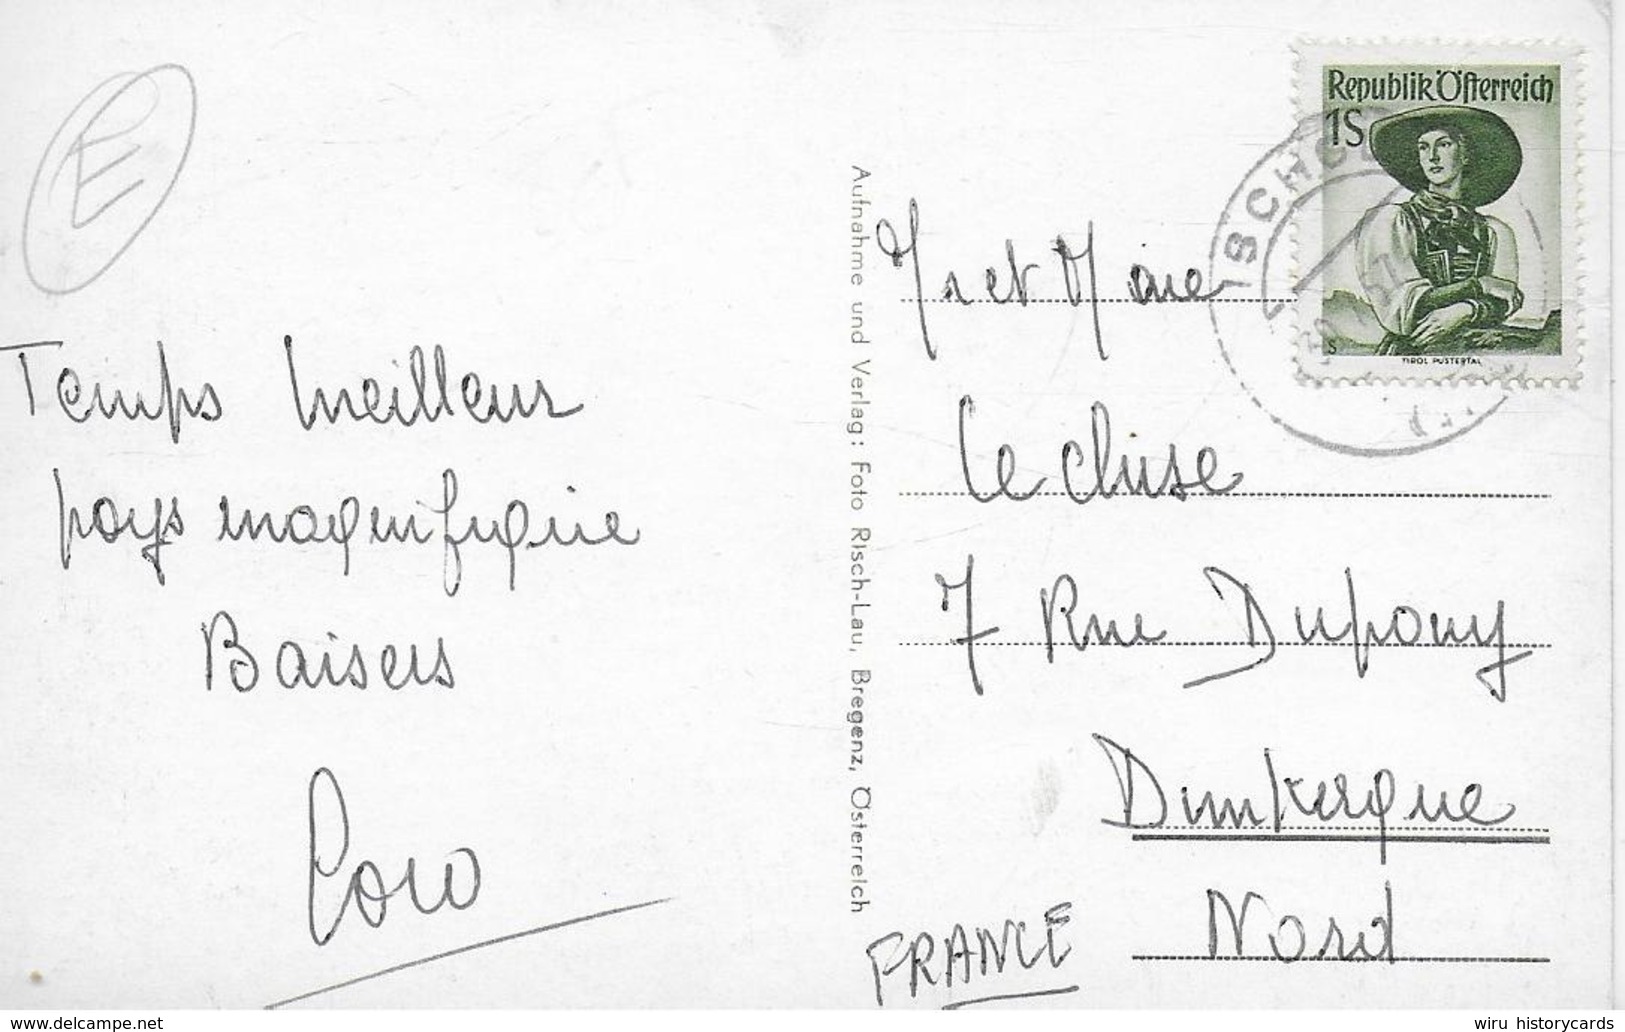 E
Temps meilleur
pays magnifique
Baisers
Coco
Aufnahme und Verlag: Foto Risch-Lau, Bregenz, Österreich
Republik Österreich
1S
TIROL PUSTERTAL
Mr et Mme
Le cluse
7 Rue Dupouy
Dunkerque
Nord
FRANCE
wiru historycards